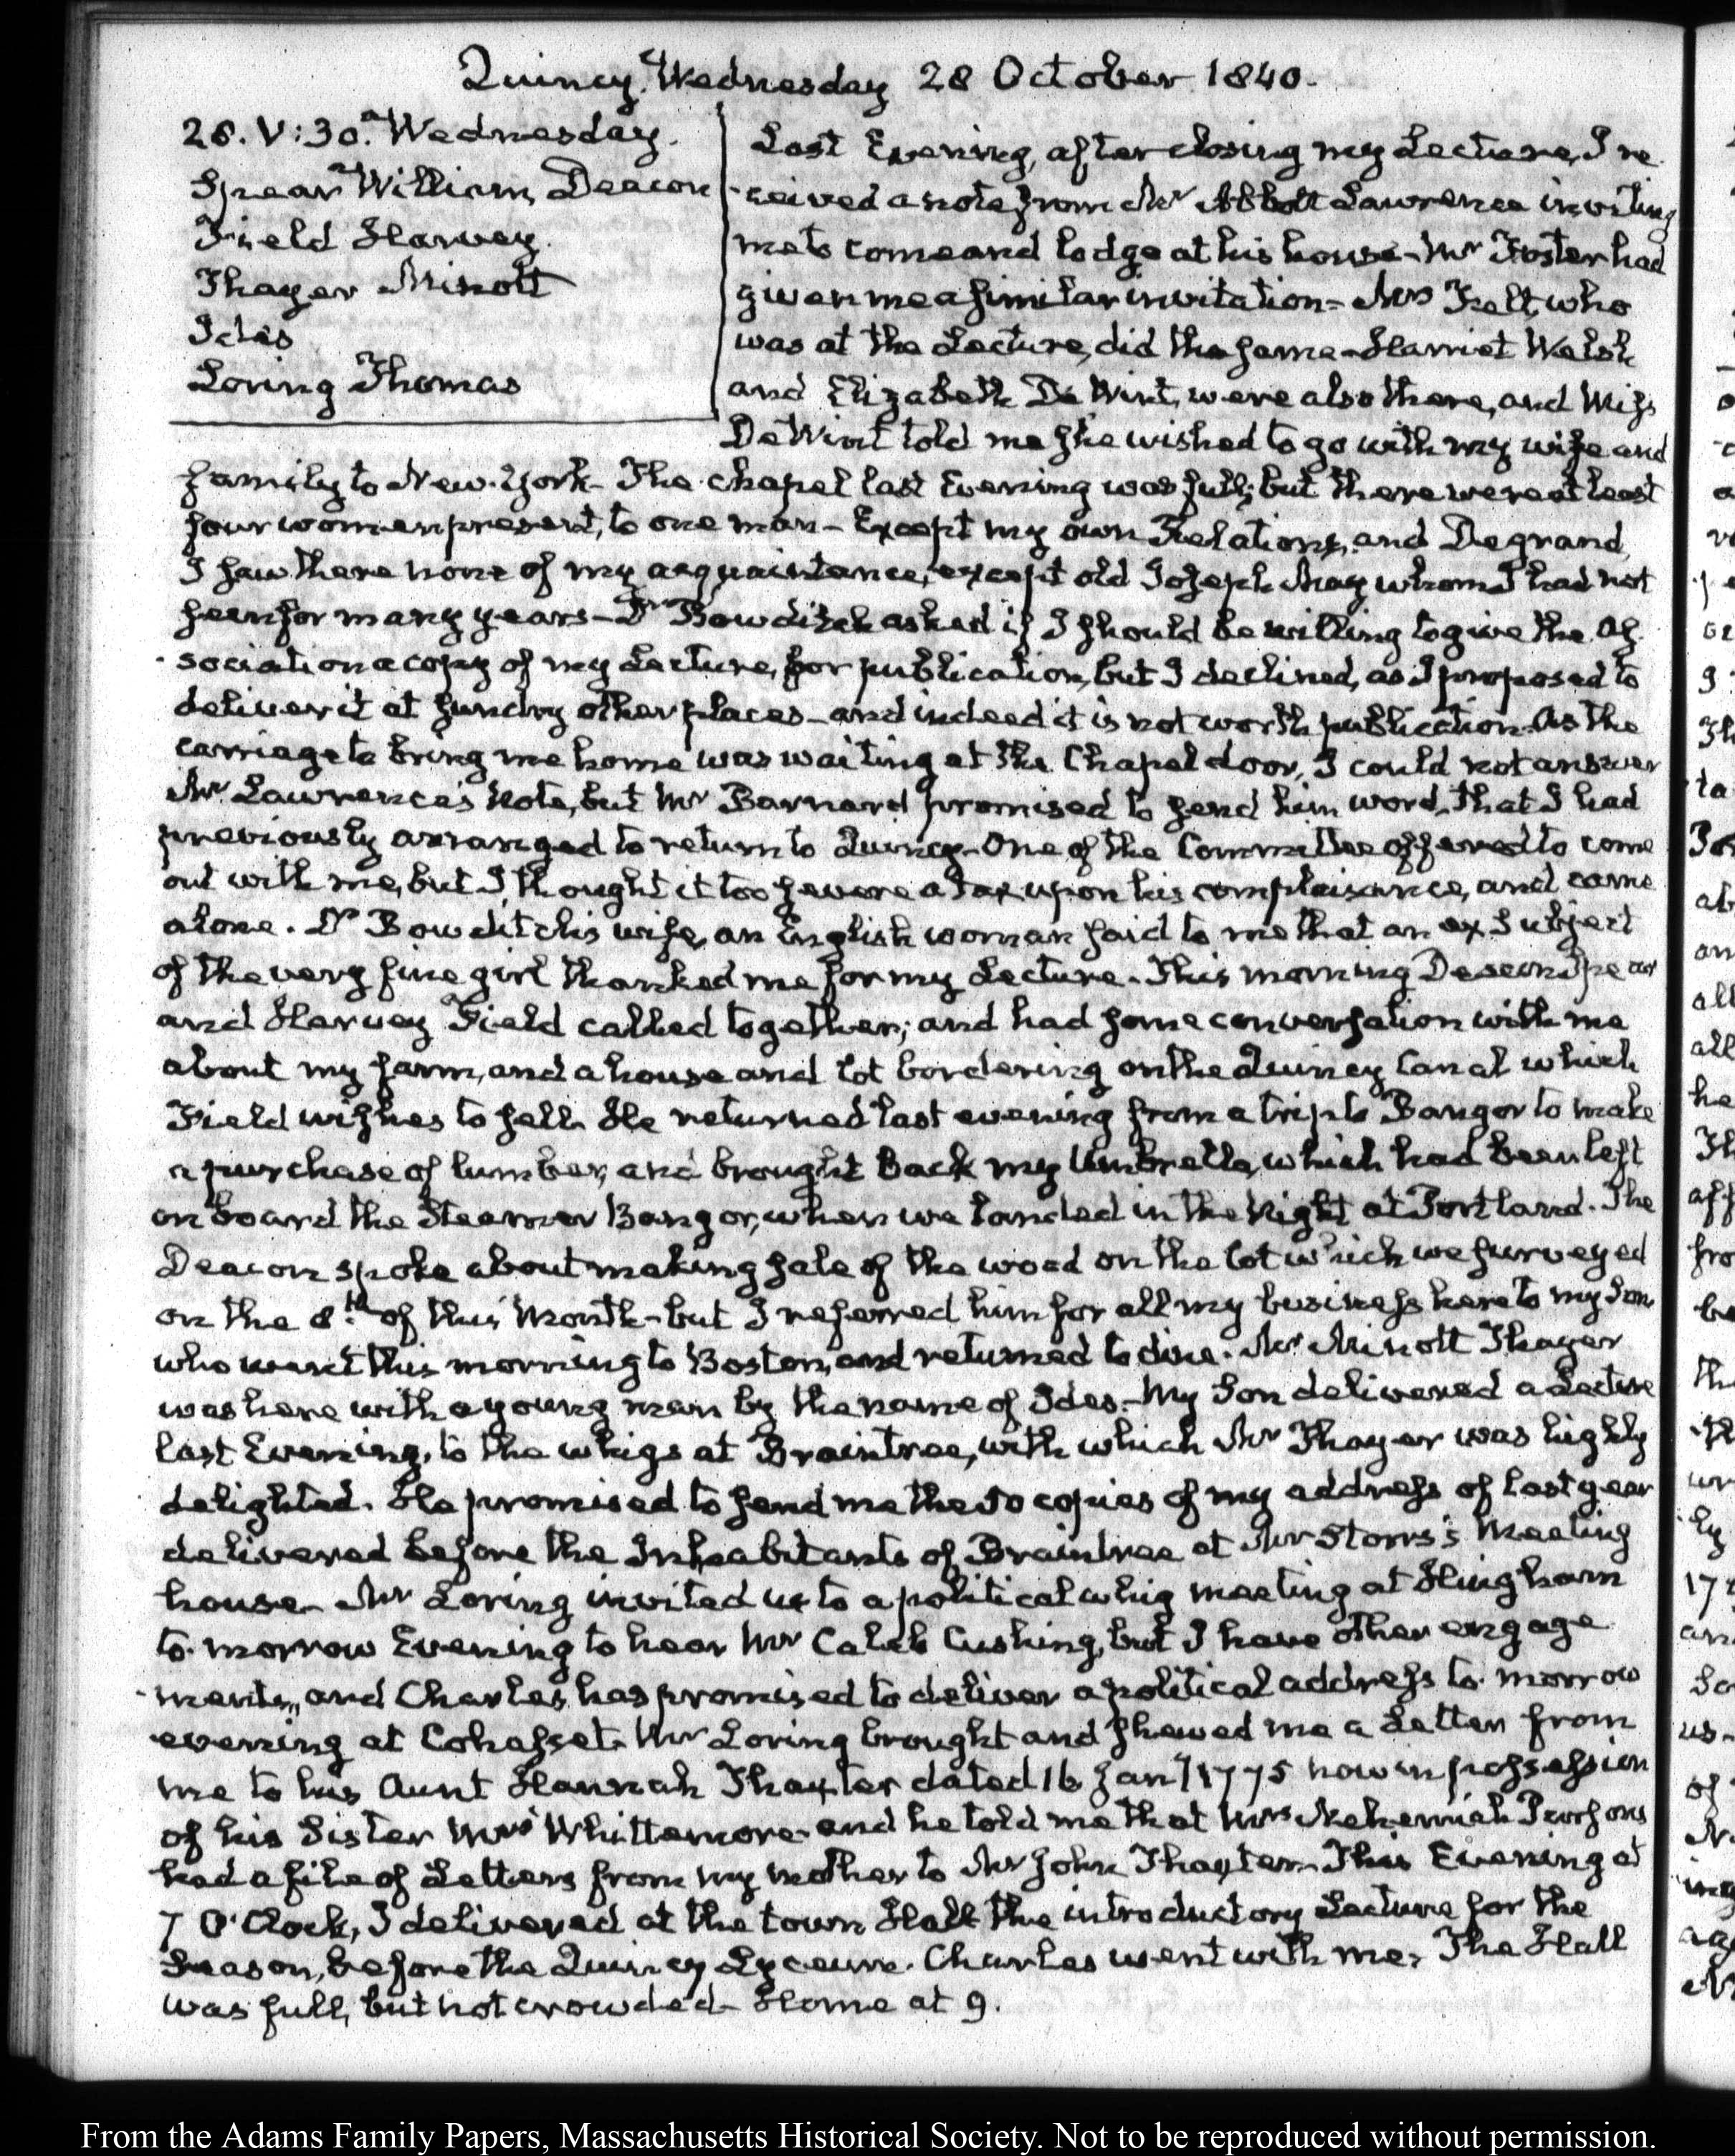 Quincy. Wednesday 28 October 1840.
28. V:30. Wednesday.
Spear William, Deacon
Field Harvey.
Thayer Minott
Ides
Loring Thomas
Last Evening, after closing my Lecture, I re
-ceived a note from Mr Abbott Lawrence inviting
me to come and lodge at his house- Mr Foster had
given me a similar invitation- Mrs Felt, who
was at the Lecture, did the same- Harriet Welsh
and Elizabeth De Wint, were also there, and Miss
De Wint told me she wished to go with my wife and
family to New-York- The chapel last Evening was full; but there were at least
four women present, to one man- Except my own Relations, and Degrand,
I saw there none of my acquaintance, except old Joseph May whom I had not
seen for many years- Dr Bowditch asked if I should be willing to give the As
-sociation a copy of my Lecture, for publication, but I declined, as I proposed to
deliver it at sundry other places- and indeed it is not worth publication. As the
carriage to bring me home was waiting at the Chapel door, I could not answer
Mr Lawrence's Note, but Mr Barnard promised to send him word, that I had
previously arranged to return to Quincy- One of the Committee offered to come
out with me, but I thought it too severe a tax upon his complaisance, and came
alone. Dr Bowditch's wife, an English woman said to me that an ex Subject
of the very fine girl thanked me for my Lecture. This morning Deacon Spear
and Harvey Field called together; and had some conversation with me
about my farm, and a house and lot bordering on the Quincy Canal which
Field wishes to sell. He returned last evening from a trip to Bangor to make
a purchase of lumber, and brought Back my Umbrella, which had been left
on board the Steamer Bangor, when we landed in the Night at Portland. The
Deacon spoke about making sale of the wood on the lot which we surveyed
on the 8th of this Month- but I referred him for all my business here to my Son
who went this morning to Boston, and returned to dine. Mr Minott Thayer
was here with a young man by the name of Ides- My Son delivered a Lecture
last Evening, to the whigs at Braintree, with which Mr Thayer was highly
delighted. He promised to send me the 50 copies of my address of last year
delivered before the Inhabitants of Braintree at Mr Storrs's Meeting
house- Mr Loring invited us to a political whig meeting at Hingham
to-morrow Evening to hear Mr Caleb Cushing, but I have other engage
-ments, and Charles has promised to deliver a political address to-morrow
evening at Cohasset. Mr Loring brought and shewed me a Letter from
me to his Aunt Hannah Thaxter dated 16 Jany 1775 now in possession
of his Sister Mrs Whittemore- and he told me that Mrs Nehemiah Parsons
had a file of Letters from my mother to Mr John Thaxter. This Evening at
7 O'Clock, I delivered at the town Hall the introductory Lecture for the
Season, before the Quincy Lyceum. Charles went with me. The Hall
was full, but not crowded- Home at 9.
From the Adams Family Papers, Massachusetts Historical Society. Not to be reproduced without permission.